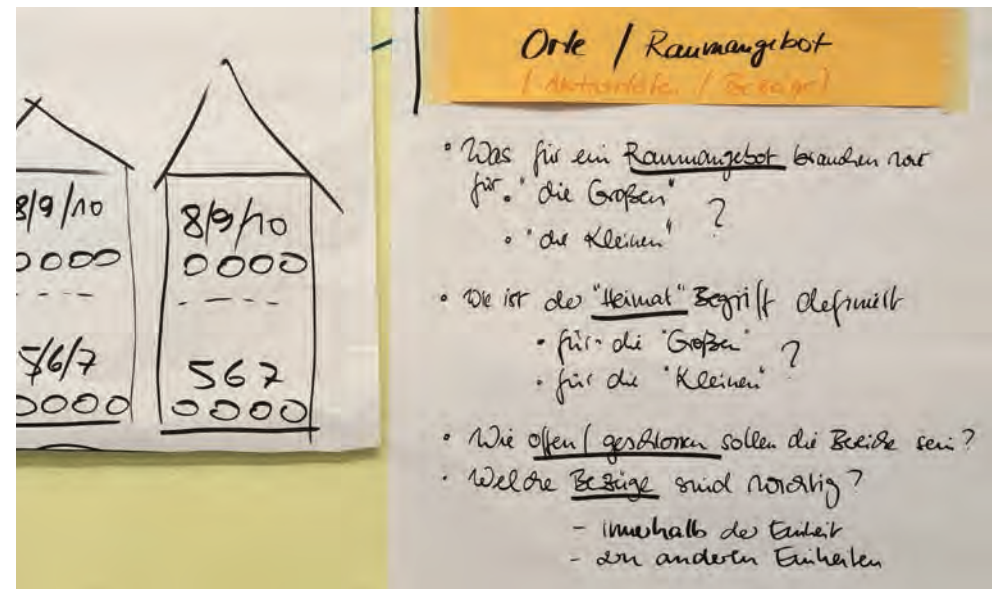 8/9/10
0000
5/6/7
0000
8/9/10
0000
5 6 7
0000
Orte / Raumangebot
( Aktivitäten / Bezüge)
• Was für ein Raumangebot brauchen wir
für • "die Großen"
• "die Kleinen" ?
• Wie ist der "Heimat" Begriff definiert
• für die "Großen"
• für die "Kleinen" ?
• Wie offen / geschlossen sollen die Bereiche sein?
• Welche Bezüge sind wichtig?
- innerhalb der Einheit
- zu anderen Einheiten